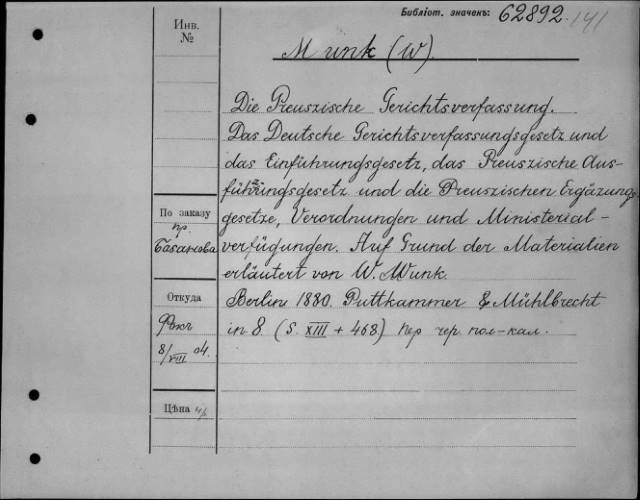 Библіот. значекъ: 62892. 141
Инв.
№
Munk (W).
Die Preuszische Gerichtsverfassung.
Das Deutsche Gerichtsverfassungsgesetz und
das Einführungsgesetz, das Preuszische Aus-
führungsgesetz und die Preuszischen Ergäzungs
gesetze, Verordnungen und Ministerial-
verfügungen. Auf Grund der Materialien
erläutert von W. Munk.
Berlin 1880. Puttkammer & Mühlbrecht
in 8. (S. XIII + 463) пер чер пол-кал.
По заказу
пр.
Откуда
8/VIII 04.
Цѣна